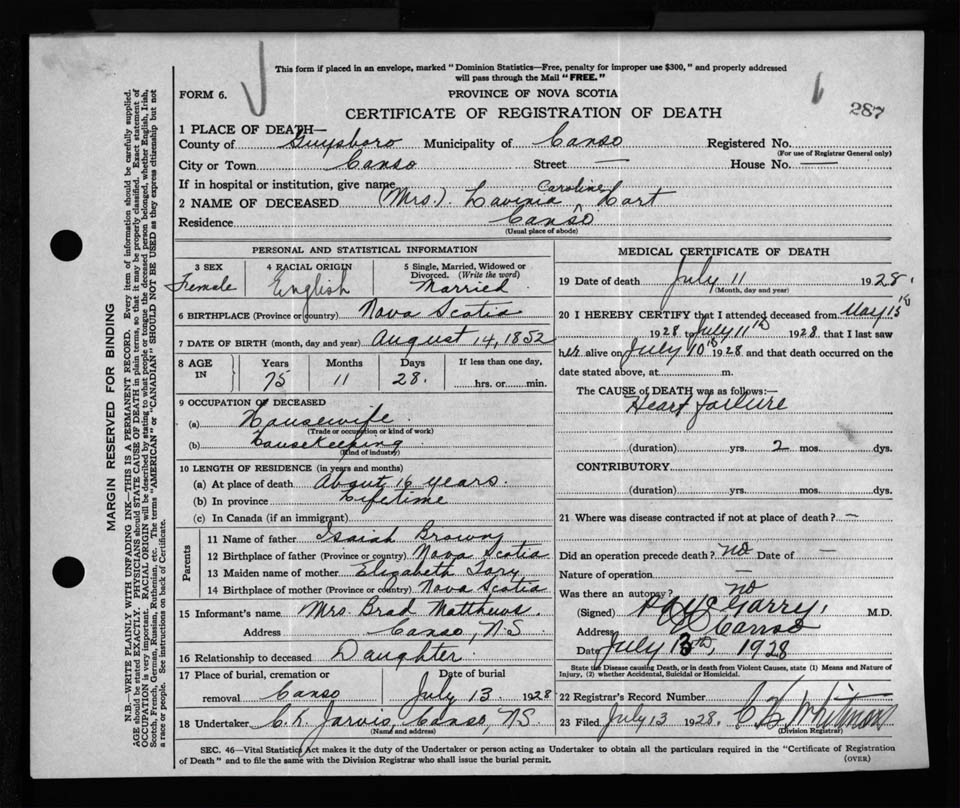 This form if placed in an envelope, marked "Dominion Statistics—Free, penalty for improper use $300," and properly addressed
will pass through the Mail "FREE."
FORM 6.
PROVINCE OF NOVA SCOTIA
287
CERTIFICATE OF REGISTRATION OF DEATH
1 PLACE OF DEATH—
County of Guysboro Municipality of Canso Registered No.
(For use of Registrar General only)
City or Town Canso Street — House No. —
If in hospital or institution, give name
Caroline
2 NAME OF DECEASED (Mrs.) Lavinia ^ Hart
Residence Canso
(Usual place of abode)
PERSONAL AND STATISTICAL INFORMATION
3 SEX 4 RACIAL ORIGIN 5 Single, Married, Widowed or
Divorced. (Write the word)
Female English Married
6 BIRTHPLACE (Province or country) Nova Scotia
7 DATE OF BIRTH (month, day and year) August 14, 1852
8 AGE IN Years Months Days If less than one day,
75 11 28. hrs. or min.
9 OCCUPATION OF DECEASED
(a) Housewife
(Trade or occupation or kind of work)
(b) Housekeeping
(Kind of industry)
10 LENGTH OF RESIDENCE (in years and months)
(a) At place of death About 16 years.
(b) In province Lifetime
(c) In Canada (if an immigrant)
Parents
11 Name of father Isaiah Brown
12 Birthplace of father (Province or country) Nova Scotia
13 Maiden name of mother Elizabeth Tory
14 Birthplace of mother (Province or country) Nova Scotia
15 Informant's name Mrs. Brad Matthews.
Address Canso, N.S
16 Relationship to deceased Daughter
17 Place of burial, cremation or Date of burial
removal Canso July 13. 1928
18 Undertaker C. K. Jarvis, Canso, N.S
(Name and address)
MEDICAL CERTIFICATE OF DEATH
19 Date of death July 11 1928.
(Month, day and year)
20 I HEREBY CERTIFY that I attended deceased from May 15th
1928 to July 11th 1928 that I last saw
her alive on July 10th 1928 and that death occurred on the
date stated above, at m.
The CAUSE of DEATH was as follows:—
Heart failure
(duration) yrs. 2 mos. dys.
CONTRIBUTORY.
(duration) yrs. mos. dys.
21 Where was disease contracted if not at place of death? —
Did an operation precede death? no Date of —
Nature of operation —
Was there an autopsy? no
(Signed) McGarry, M.D.
Address Canso
Date July 13th, 1928
State the Disease causing Death, or in death from Violent Causes, state (1) Means and Nature of
Injury, (2) whether Accidental, Suicidal or Homicidal.
22 Registrar's Record Number
23 Filed July 13 1928. Whitman
(Division Registrar)
SEC. 46—Vital Statistics Act makes it the duty of the Undertaker or person acting as Undertaker to obtain all the particulars required in the "Certificate of Registration
of Death" and to file the same with the Division Registrar who shall issue the burial permit.
(OVER)
MARGIN RESERVED FOR BINDING
N.B.—WRITE PLAINLY WITH UNFADING INK—THIS IS A PERMANENT RECORD. Every item of information should be carefully supplied.
AGE should be stated EXACTLY. PHYSICIANS should STATE CAUSE OF DEATH in plain terms, so that it may be properly classified. Exact statement of
OCCUPATION is very important. RACIAL ORIGIN will be described by stating to what people or tongue the deceased person belonged, whether English, Irish,
Scotch, French, German, Russian, Ruthenian, etc. The terms "AMERICAN" or "CANADIAN" SHOULD NOT BE USED as they express citizenship but not
a race or people. See instructions on back of Certificate.